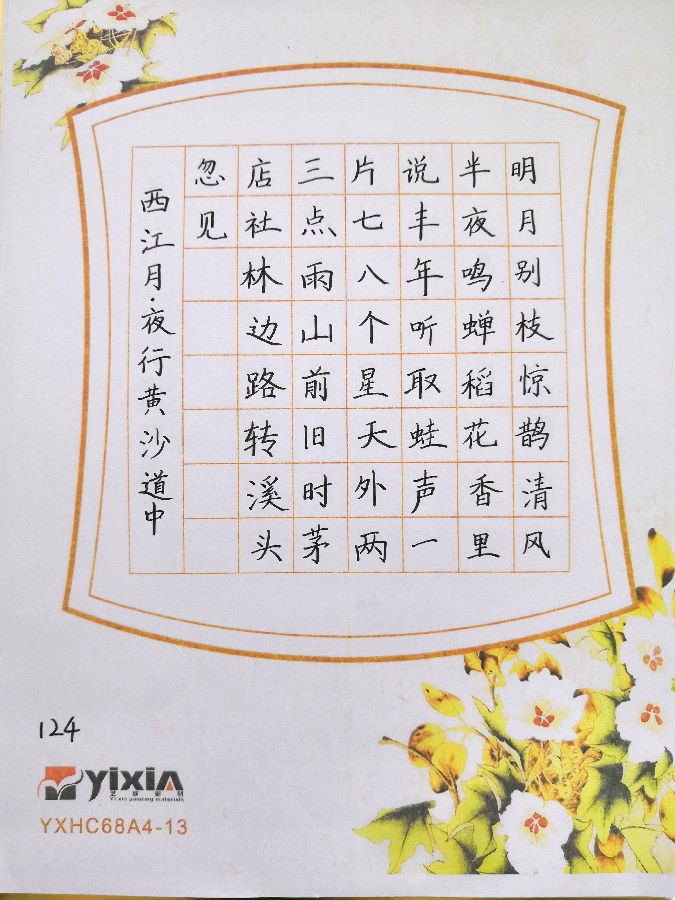 明月别枝惊鹊清风
半夜鸣蝉稻花香里
说丰年听取蛙声一
片七八个星天外两
三点雨山前旧时茅
店社林边路转溪头
忽见
西江月·夜行黄沙道中
124
yixin
YXHC68A4-13